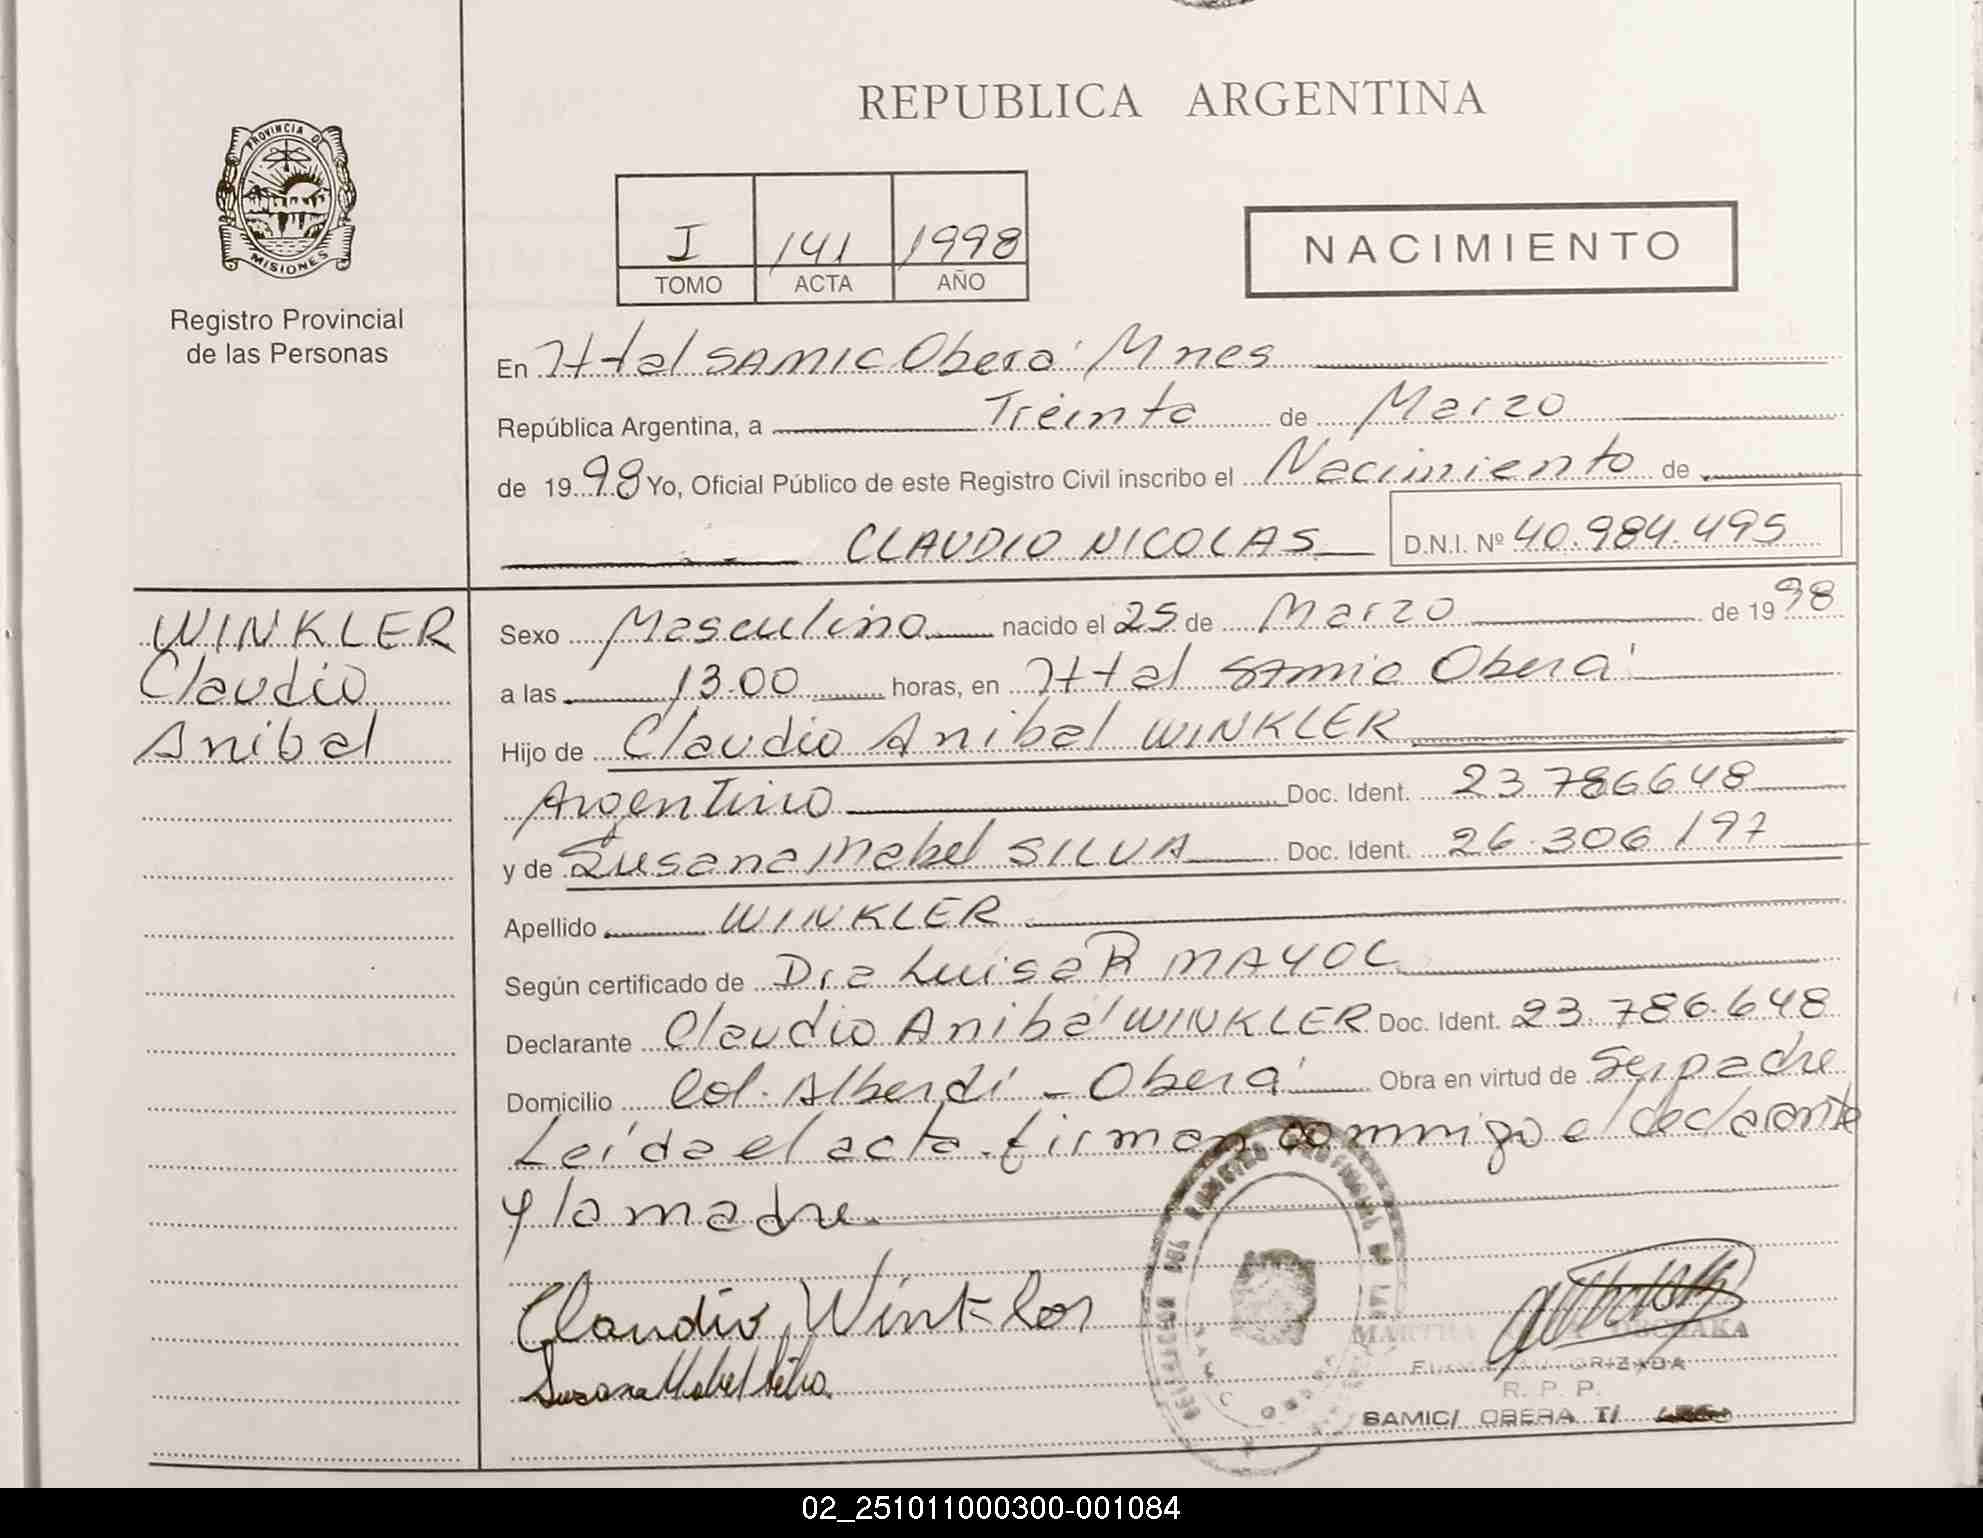 REPUBLICA ARGENTINA
PROVINCIA DE
MISIONES
Registro Provincial
de las Personas
I 141 1998
TOMO ACTA AÑO
NACIMIENTO
En Htal SAMIC Oberá Mnes
República Argentina, a Treinta de Marzo
de 1998 Yo, Oficial Público de este Registro Civil inscribo el Nacimiento de
CLAUDIO NICOLAS D.N.I. Nº 40.984.495
WINKLER
Claudio
Anibal
Sexo Masculino nacido el 25 de Marzo de 1998
a las 13.00 horas, en Htal Samic Oberá
Hijo de Claudio Anibal WINKLER
Argentino Doc. Ident. 23 786648
y de Susana Mabel SILVA Doc. Ident. 26.306 197
Apellido WINKLER
Según certificado de Dra Luisa R MAYOL
Declarante Claudio Anibal WINKLER Doc. Ident. 23.786.648
Domicilio Col. Alberdi - Oberá Obra en virtud de Ser padre
Leída el acta firman conmigo el declarante
y la madre.
Claudio Winkler
Susana Mabel Silva
MARTHA
FIRMA AUTORIZADA
R. P. P.
SAMIC/ OBERA T/
02_251011000300-001084